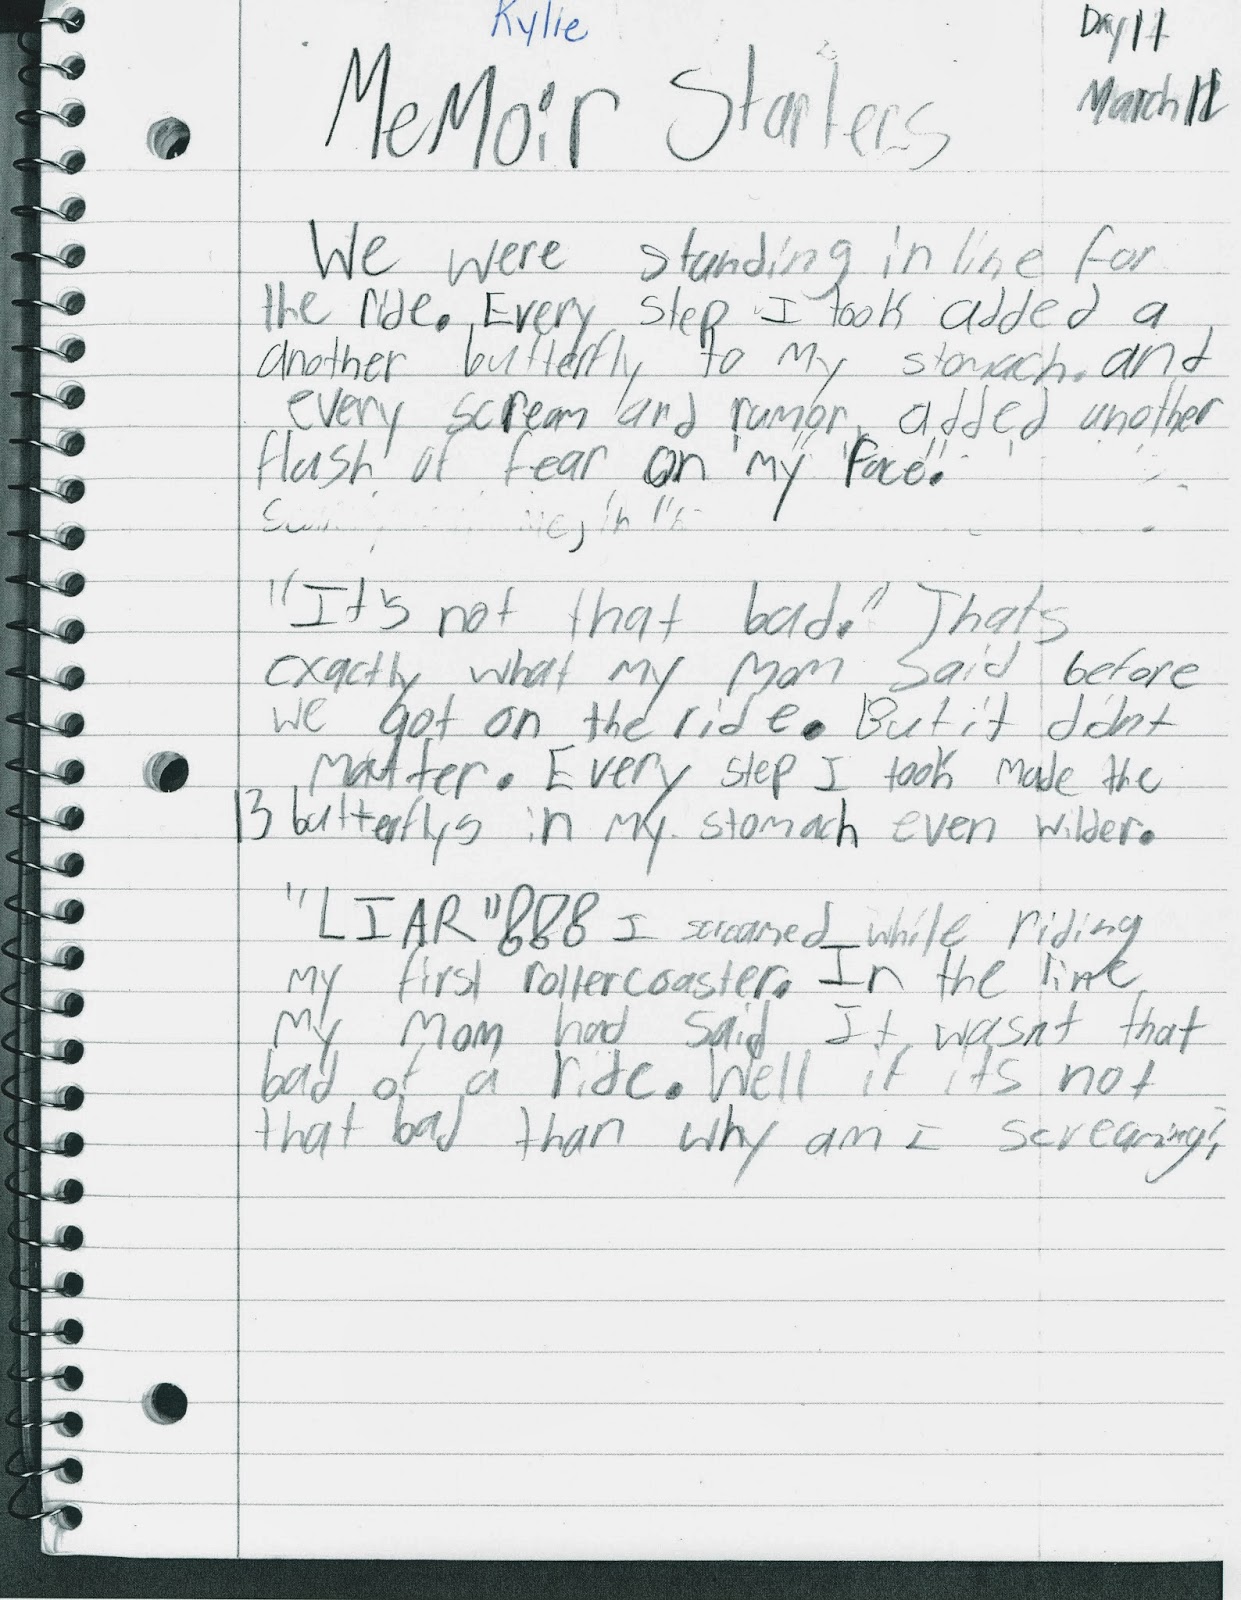 Kylie
Day 11
March 11
Memoir Starters
We were standing in line for
the ride. Every step I took added a
another butterfly to my stomach. and
every scream and rumor added another
flash of fear on my face.
"It's not that bad." Thats
exactly what my mom said before
we got on the ride. But it didnt
matter. Every step I took made the
13 butterflys in my stomach even wilder.
"LIAR"!!! I screamed while riding
my first rollercoaster. In the line
my mom had said It wasnt that
bad of a ride. Well if its not
that bad than why am I screaming?